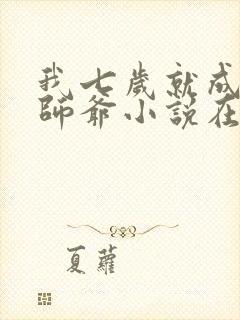 我七歲就成
師爺小說在
夏蘿